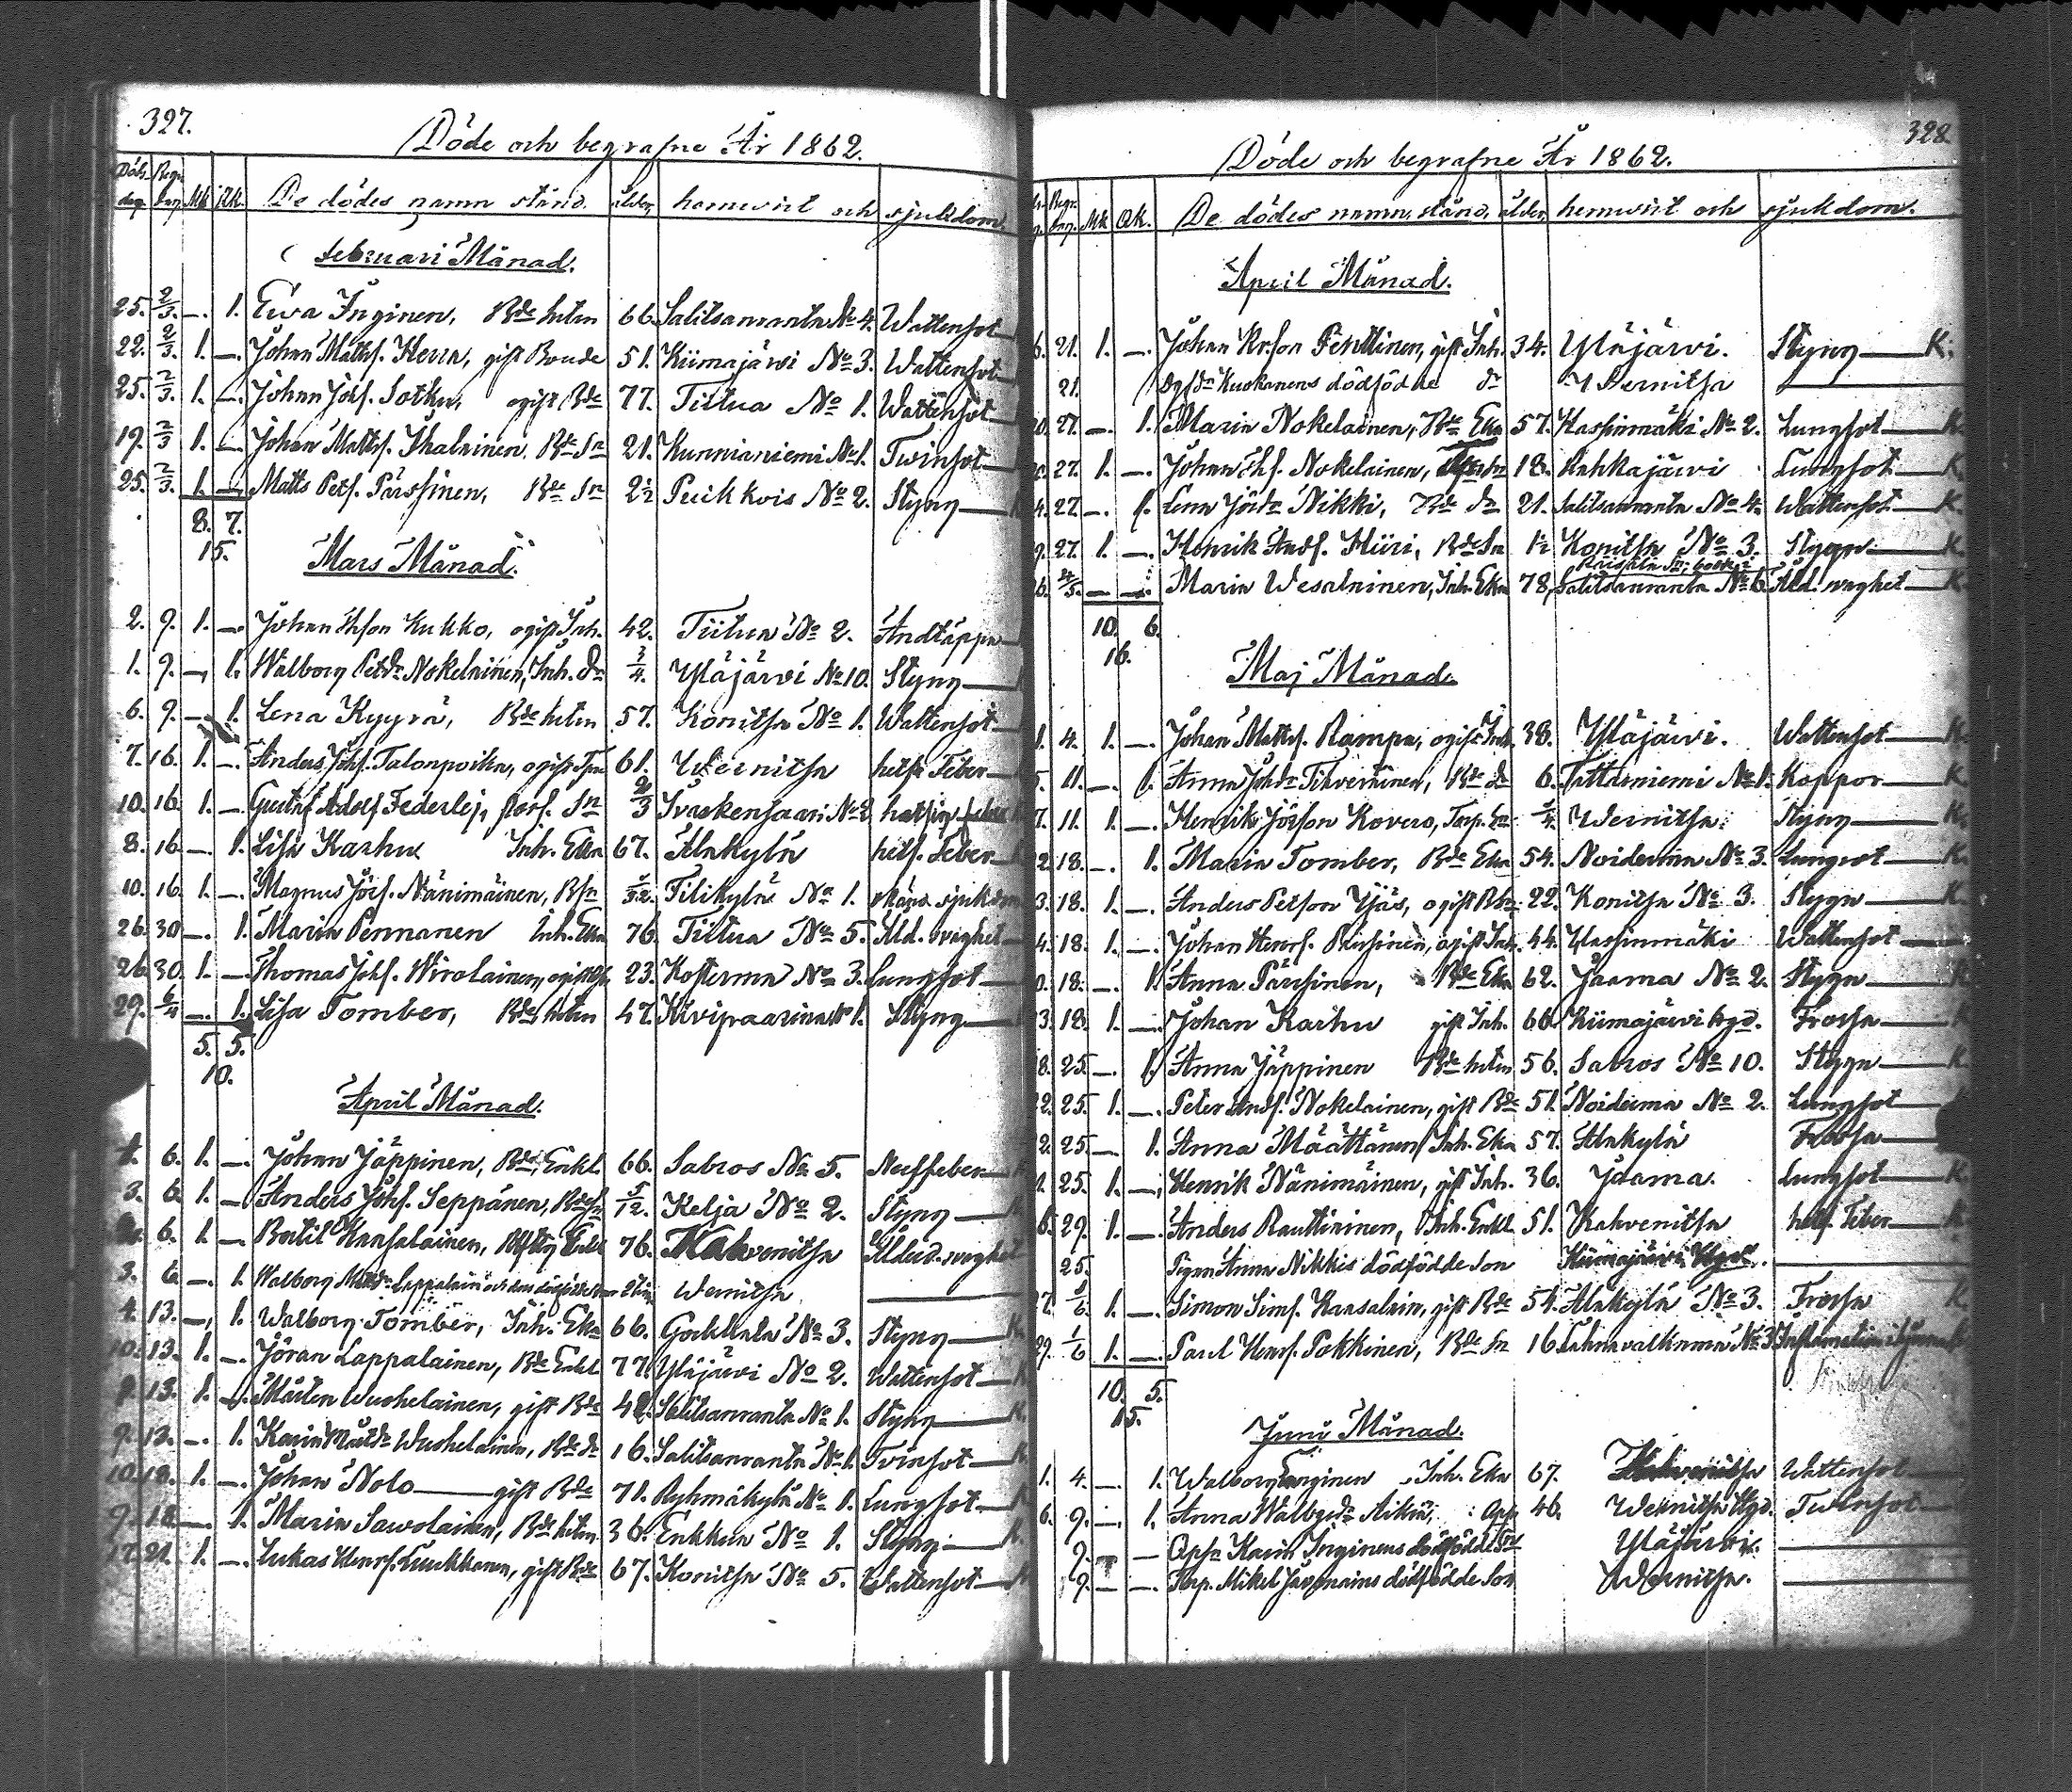 327.
Döde och begrafne År 1862.
Döds- dag Begr. dag Mk. Qk. De dödes namn stånd. ålder, hemvist och sjukdom.
Februari Månad.
25. 2/3. —. 1. Ewa Inginen, Bde hstm 66. Salitsanranta No 4. Wattensot
22. 2/3. 1. —. Johan Matts. Herra, gift Bonde 51. Kiimajärwi No 3. Wattensot
25. 2/3. 1. —. Johan Johs. Sotku, ogift Bde 77. Tiitua No 1. Wattensot
19. 2/3 1. —. Johan Matts. Ihalainen. Bde Sn 21. Kunnianiemi No 1. Twinsot
25. 2/3. 1. —. Matts Pets. Pärssinen, Bde Sn 2 1/2 Puikkois No 2. Styng
8. 7.
15.
Mars Månad.
2. 9. 1. —. Johan Thson Kukko, ogift Inh. 42. Tiitua No 2. Andtäppa
1. 9. —, 1. Walborg Petdr Nokelainen, Inh. dr 3/4. Yläjärvi No 10. Styng
6. 9. —. 1. Lena Kyyrä, Bde hstm 57. Konitsa No 1. Wattensot
7. 16. 1. —. Anders Johs. Talonpoika, ogift 61. Wernitsa hetsk Feber
10. 16. 1. — Gustaf Adolf Federlej, Sn 2/3 Svaskensaari No 2
8. 16. —. 1. Lisa Karhu Inh. Eka 67. Alakylä hets. Feber
10. 16. 1. — Magnus Jörs. Nänimäinen, Tilikylä No 1. sjukdom
26. 30. —. 1. Maria Pennanen Inh. Eka 76. Tiitua No 5. Åld. svaghet
26. 30. 1. —. Thomas Johs. Wirolainen, ogift 23. Kosterma No 3. Lungsot
29. 6/4 —. 1. Lisa Tomber, Bde hstm 47. Kivipaarina No 1. Styng
5. 5.
10.
April Månad.
1. 6. 1. —. Johan Jäppinen, Bde. Enkl. 66. Sabros No 5. Nerffeber
3. 6. 1. — Anders Johs. Seppänen, Bde Sn 5/12. Kelja No 2. Styng
6. 1. — Bertil Kansalainen, Enkl 76. Kahvenitsa Ålderd. svaghet
3. 6. —. 1. Walborg Wernitsa
4. 13. —, 1. Walborg Tomber, Inh. Eka 66. Gockkala No 3. Styng K.
10. 13. 1. —. Jöran Lappalainen, Bde Enkl 77. Yläjärvi No 2. Wattensot K
9. 13. 1. —. Mårten Wuohelainen, gift Bde 42. Salitsanranta No 1. Styng K.
9. 13. —. 1. Karin Mårtdr Wuohelainen, Bde dr 16. Salitsanranta No 1. Tvinsot
10. 18. 1. —. Johan Nolo gift Bde 71. Ryhmäkylä No 1. Lungsot
9. 18. —. 1. Maria Sawolainen, Bde hstm. 36. Enkkua No 1. Styng K.
17. 21. 1. —. Lukas Henrs. Luukkanen, gift Bde 67. Konitsa No 5. Wattensot
328
Döde och begrafne År 1862.
Begr. dag. Mk. Qk. De dödes namn, stånd, ålder, hemvist och sjukdom.
April Månad.
6. 21. 1. —. Johan Penttinen, gift Inh. 34. Yläjärvi. Styng K.
21. Kuokanens dödfödde dr Wernitsa
27. —. 1. Maria Nokelainen, Bde Eka 57. Hassinmäki No 2. Lungsot K.
27. 1. —. Johan Ths. Nokelainen, 18. Rahkajärvi Lungsot K.
4. 27. —. 1. Lena Jördr Nikki, Bde dr 21. Salitsanranta No 4. Wattensot K.
9. 27. 1. —. Henrik Ands. Hiiri, Bde Sn 1 1/2 Konitsa No 3. Stygn K.
26. 4/5. — —. Maria Wesalainen, Inh. Eka 78, Salitsanranta No 6. Åld. svaghet K.
10. 6.
16.
Maj Månad.
1. 4. 1. —. Johan Matts. Rampa, ogift Inh. 38. Yläjärvi. Wattensot K.
5. 11. —. 1. Anna Johdr Tihverinen, Bde dr 6. Tittarniemi No 1. Koppor K.
7. 11. 1. —. Henrik Jörson Kovero, Torp. Sn 3/4. Wernitsa. Styng K.
2. 18. —. 1. Maria Tomber, Bde Eka 54. Noiderma No 3. Lungsot K.
3. 18. 1. —. Anders Petson Yjäs, ogift 22. Konitsa No 3. Stygn K.
4. 18. 1. —. Johan Henrs. ogift Inh. 44. Hassinmäki Wattensot
0. 18. —. 1. Anna Pärssinen, Bde Eka 62. Jaama No 2. Stygn K
3. 18. 1. —. Johan Karhu gift Inh. 66. Kiimajärvi hgd. Frossa K
8. 25. —. 1. Anna Jäppinen Bde hstm 56. Sabros No 10. Stygn K.
2. 25. 1. —. Peter Ands. Nokelainen, gift Bde 51. Noiderma No 2. Lungsot
2. 25. —. 1. Anna Määttänen Inh. Eka 57. Alakylä Frossa
1. 25. 1. —, Henrik Nänimäinen, gift Inh. 36. Jaama. Lungsot K.
6. 29. 1. —. Anders Rauttiainen, Inh. Enkl 51. Kahvenitsa hets. Feber K
25. Pigan Anna Nikkis dödfödde Son Kiimajärvi Hgd.
7. 1/6 1. —. Simon Sims. Kansalain, gift Bde 54. Alakylä No 3. Frossa K.
29. 1/6 1. —. Paul Henrs. Pokkinen, Bde Sn 16. Lahnavalkama No 3. Inflamation i
10. 5.
15.
Juni Månad.
1. 4. —. 1. Walborg Inginen Inh. Eka 67. Kahvenitsa Wattensot
6. 9. —. 1. Anna Aikiä, 46. Wernitsa Hgd. Twinsot
9. — — Karin Inginens dödfödde Yläjärvi.
9. — —. Torp. Mikel dödfödde Son Wernitsa.